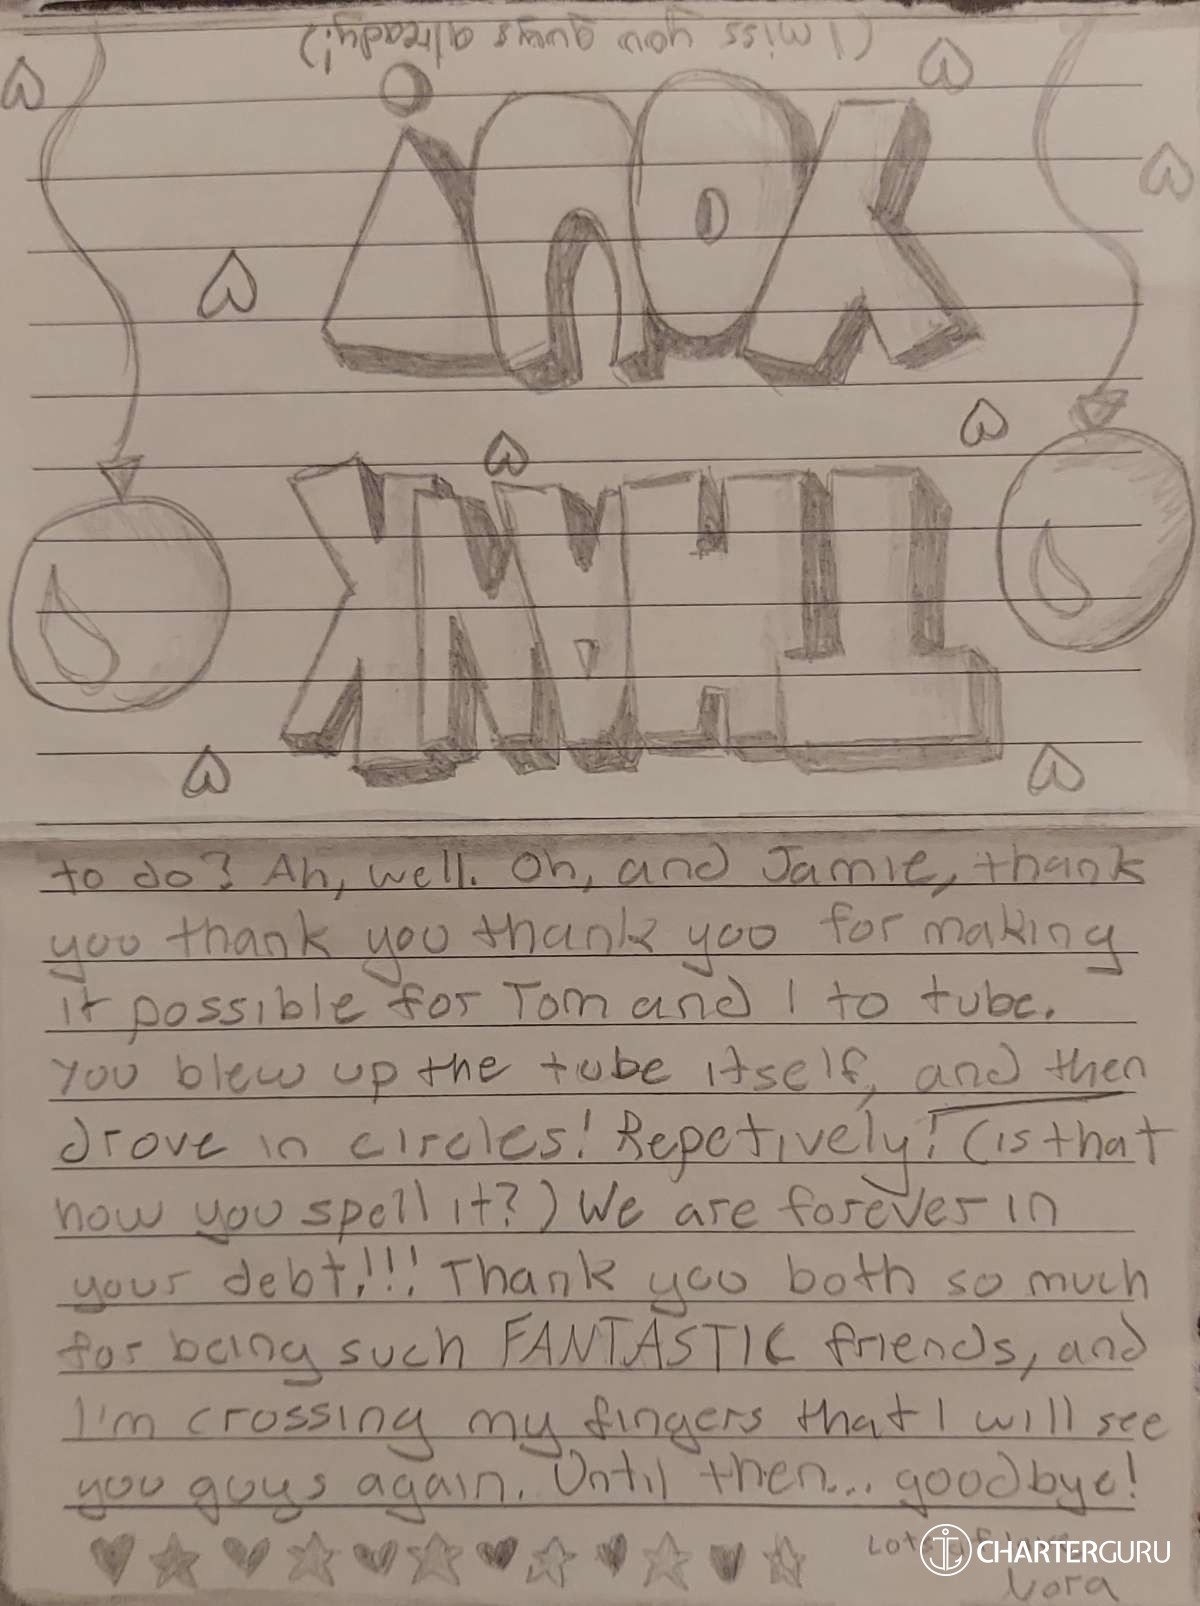 (I miss you guys already!)
THANK
YOU!
to do? Ah, well. Oh, and Jamie, thank
you thank you thank you for making
it possible for Tom and I to tube.
You blew up the tube itself, and then
drove in circles! Repetively! (is that
how you spell it?) We are forever in
your debt!!! Thank you both so much
for being such FANTASTIC friends, and
I'm crossing my fingers that I will see
you guys again. Until then... goodbye!
Lots
CHARTERGURU
Nora